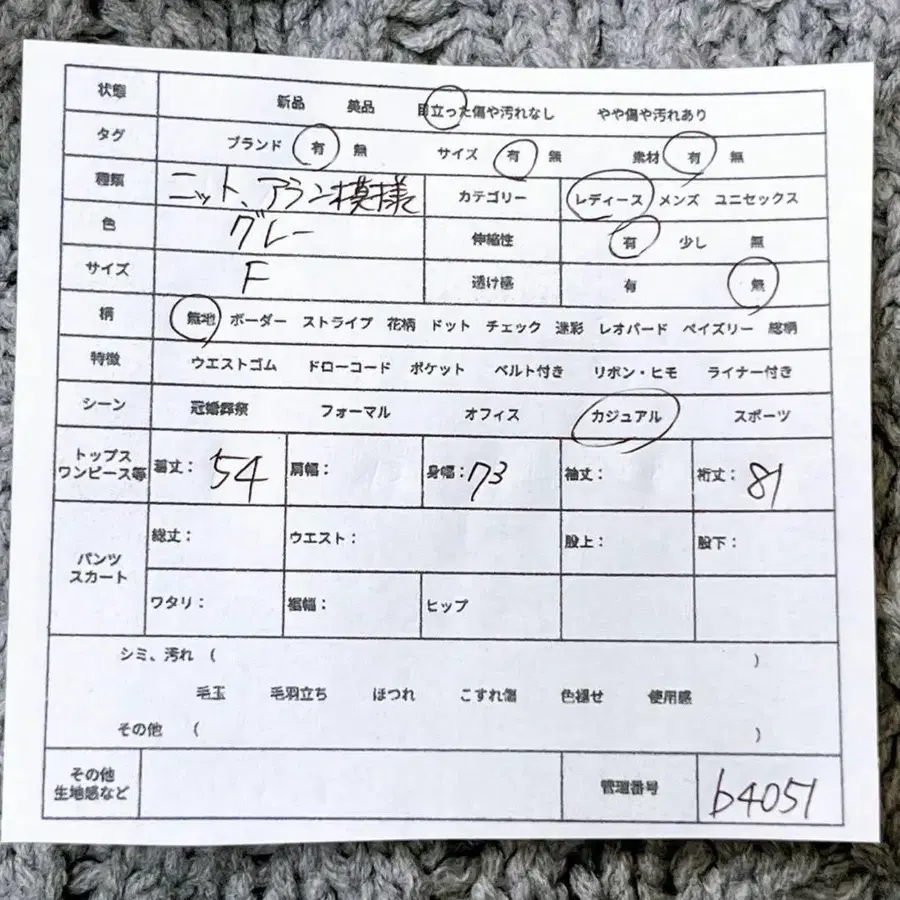 状態 新品 美品 目立った傷や汚れなし やや傷や汚れあり
タグ ブランド 有 無 サイズ 有 無 素材 有 無
種類 ニット、アラン模様 カテゴリー レディース メンズ ユニセックス
色 グレー 伸縮性 有 少し 無
サイズ F 透け感 有 無
柄 無地 ボーダー ストライプ 花柄 ドット チェック 迷彩 レオパード ペイズリー 総柄
特徴 ウエストゴム ドローコード ポケット ベルト付き リボン・ヒモ ライナー付き
シーン 冠婚葬祭 フォーマル オフィス カジュアル スポーツ
トップス
ワンピース等 着丈: 54 肩幅: 身幅: 73 袖丈: 裄丈: 81
パンツ
スカート 総丈: ウエスト: 股上: 股下:
ワタリ: 裾幅: ヒップ
シミ、汚れ ( )
毛玉 毛羽立ち ほつれ こすれ傷 色褪せ 使用感
その他 ( )
その他
生地感など 管理番号 b4051